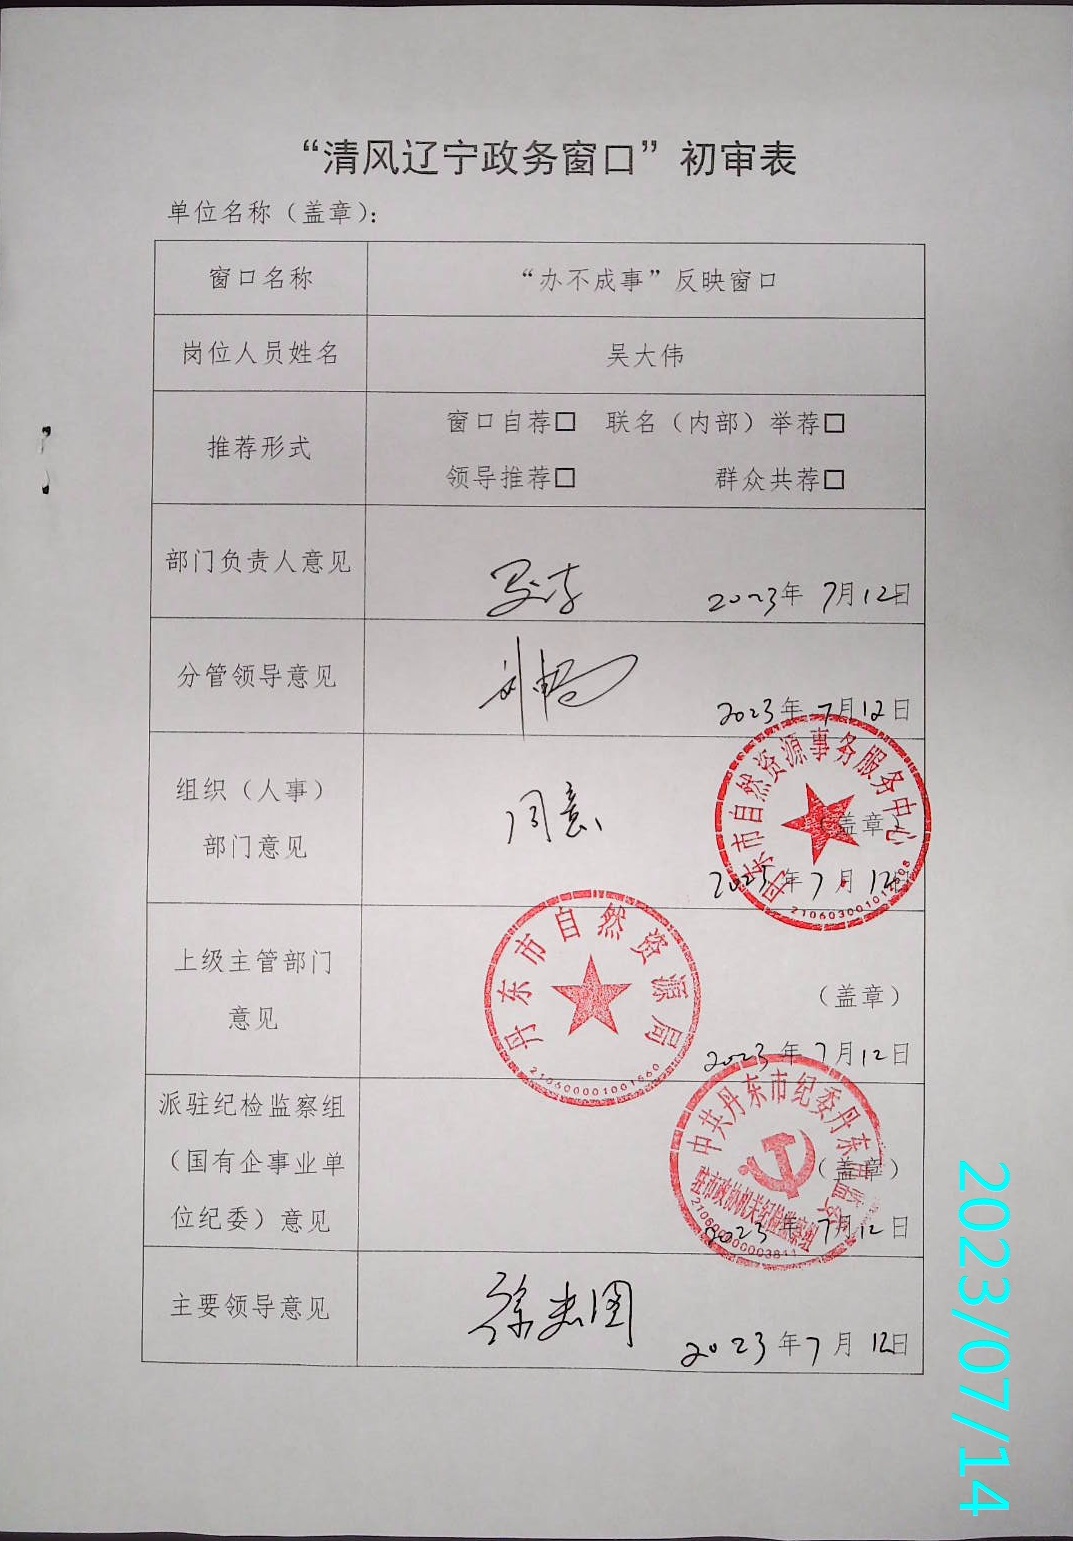 “清风辽宁政务窗口”初审表
单位名称（盖章）：
窗口名称
“办不成事”反映窗口
岗位人员姓名
吴大伟
推荐形式
窗口自荐□ 联名（内部）举荐□
领导推荐□ 群众共荐□
部门负责人意见
2023年 7月12日
分管领导意见
2023年 7月12日
组织（人事）
部门意见
同意
丹东市自然资源事务服务中心
（盖章）
2023年 7月 12日
上级主管部门
意见
丹东市自然资源局
2106000001001660
（盖章）
2023年 7月12日
派驻纪检监察组
（国有企事业单
位纪委）意见
中共丹东市纪委丹东市监委
驻市政协机关纪检监察组
（盖章）
2023年 7月12日
主要领导意见
2023年7月 12日
2023/07/14